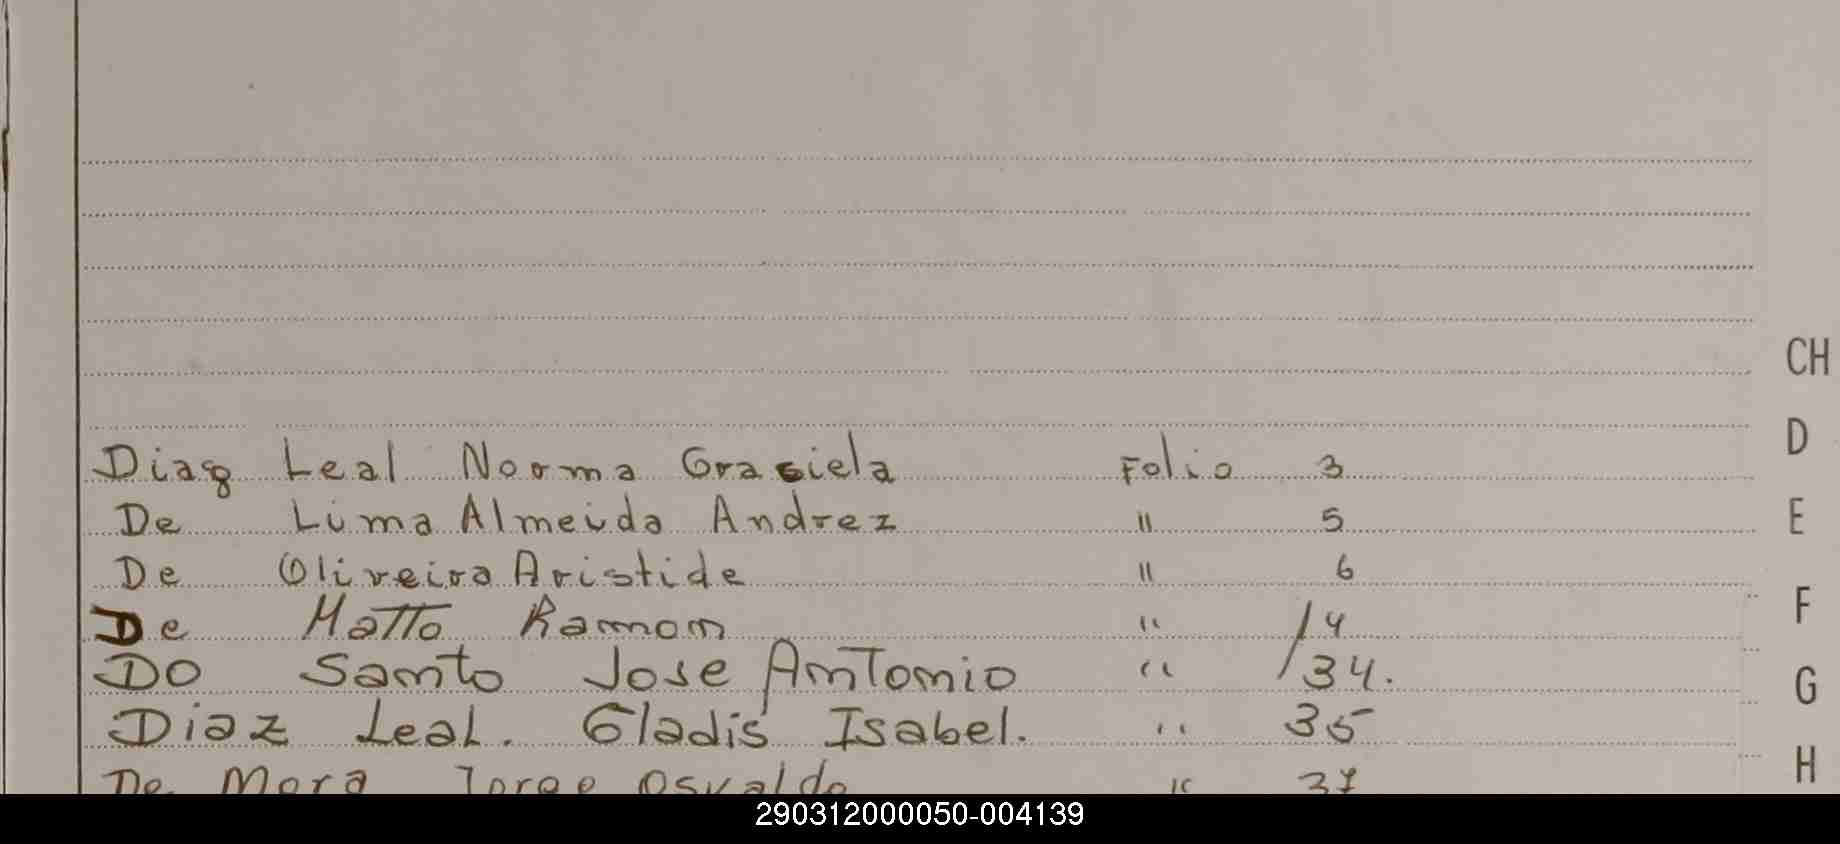 CH
D
Diaz Leal Norma Graciela Folio 3
De Lima Almeida Andrez " 5
E
De Oliveira Aristide " 6
De Matto Ramon " 14
F
Do Santo Jose Antonio " 34.
G
Diaz Leal. Gladis Isabel. " 35
H
De Mora Jorge Osvaldo " 37
290312000050-004139